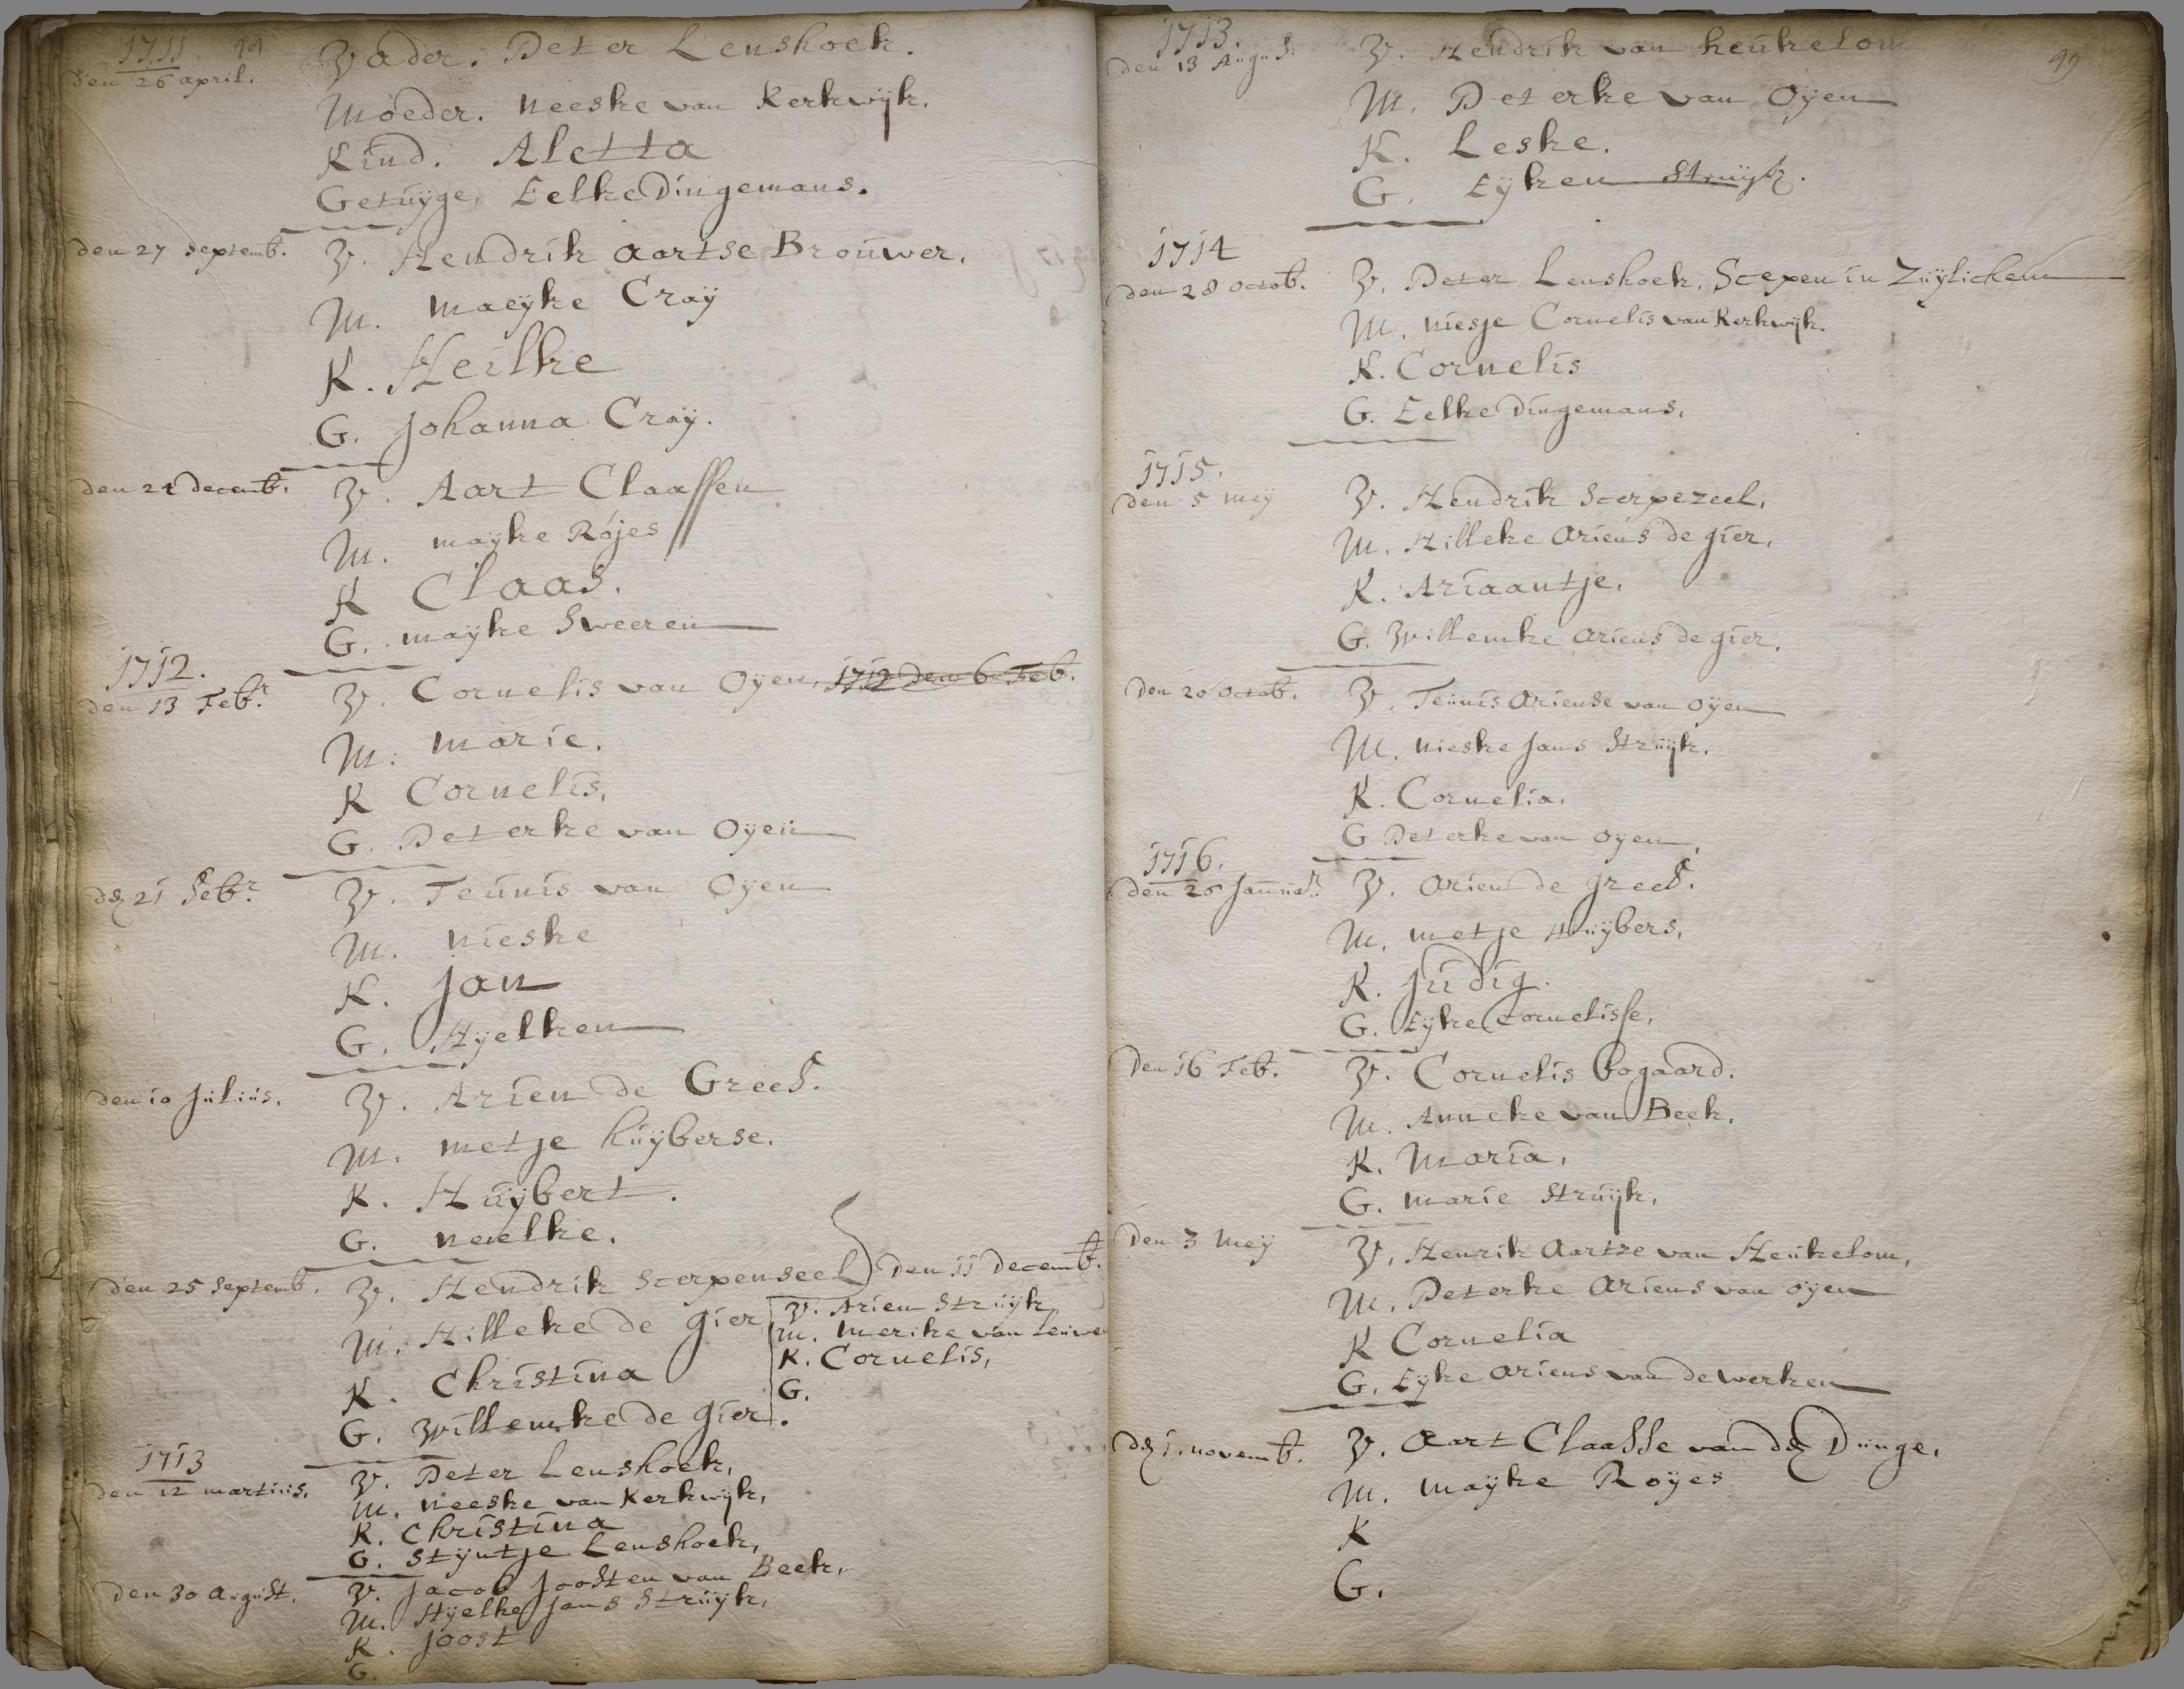 1711.
den 26 april.
Vader. Peter Lenshoek.
Moeder. Neeske van Kerkwijk.
Kind. Aletta
Getuÿge, Eelke Dingemans.
den 27 Septemb.
V. Hendrik Aartse Brouwer,
M. Maeÿke Craÿ
K. Heilke
G. Johanna Craÿ.
den 24 Decemb.
V. Aart Claassen
M. maÿke Rójes
K Claas.
G. maÿke Sweeren
1712.
den 13 Febr.
V. Cornelis van Oÿen, 1712 den 6 Feb.
M. Marie.
K Cornelis,
G. Peterke van Oÿen
d. 21 Febr.
V. Teunis van Oÿen
M. Nieske
K. Jan
G. Hÿelken
den 10 Julius.
V. Arien de Greef.
M. Metje huÿberse.
K. Huÿbert.
G. Neelke.
den 25 Septemb.
V. Hendrik Scerpenseel
M. Hilleke de Gier
K. Christina
G. Willemke de Gier.
den 11 Decemb.
V. Arien Struÿk
M. Merike van Leuwen
K. Cornelis,
G.
1713
den 12 martius.
V. Peter Lenshoek,
M. Neeske van Kerkwijk,
K. Christina
G. Stÿntje Lenshoek,
den 30 August.
V. Jacob Joosten van Beek,
M. Hÿelke Jans Struÿk,
K. Joost
G.
1713.
den 13 August.
99
V. Hendrik van heukelom
M. Peterke van Oÿen
K. Leske.
G. Eÿken Struÿk.
1714
den 28 Octob.
V. Peter Lenshoek, Scepen in Zuÿlichem
M. Niesje Cornelis van Kerkwijk.
K. Cornelis
G. Eelke Dingemans,
1715.
den 5 Meÿ
V. Hendrik Scerpezeel,
M. Hilleke Ariens de gier,
K. Ariaantje,
G. Willemke Ariens de gier,
den 20 Octob.
V. Teunis Ariense van Oÿen
M. Nieske Jans Struÿk,
K. Cornelia,
G Peterke van oÿen,
1716.
den 26 Januar.
V. Arien de Greef.
M. Metje Huÿbers,
K. Judig.
G. Eÿke Cornelisse,
Den 16 Feb.
V. Cornelis bogaard.
M. Anneke van Beek,
K. Maria,
G. Marie Struÿk,
den 3 Meÿ
V. Henrik Aartze van Heukelom,
M. Peterke Ariens van oÿen
K Cornelia
G. Eÿke Ariens van de werken
d. 1. novemb.
V. Aart Claasse van d. Dunge,
M. Maÿke Roÿes
K
G.